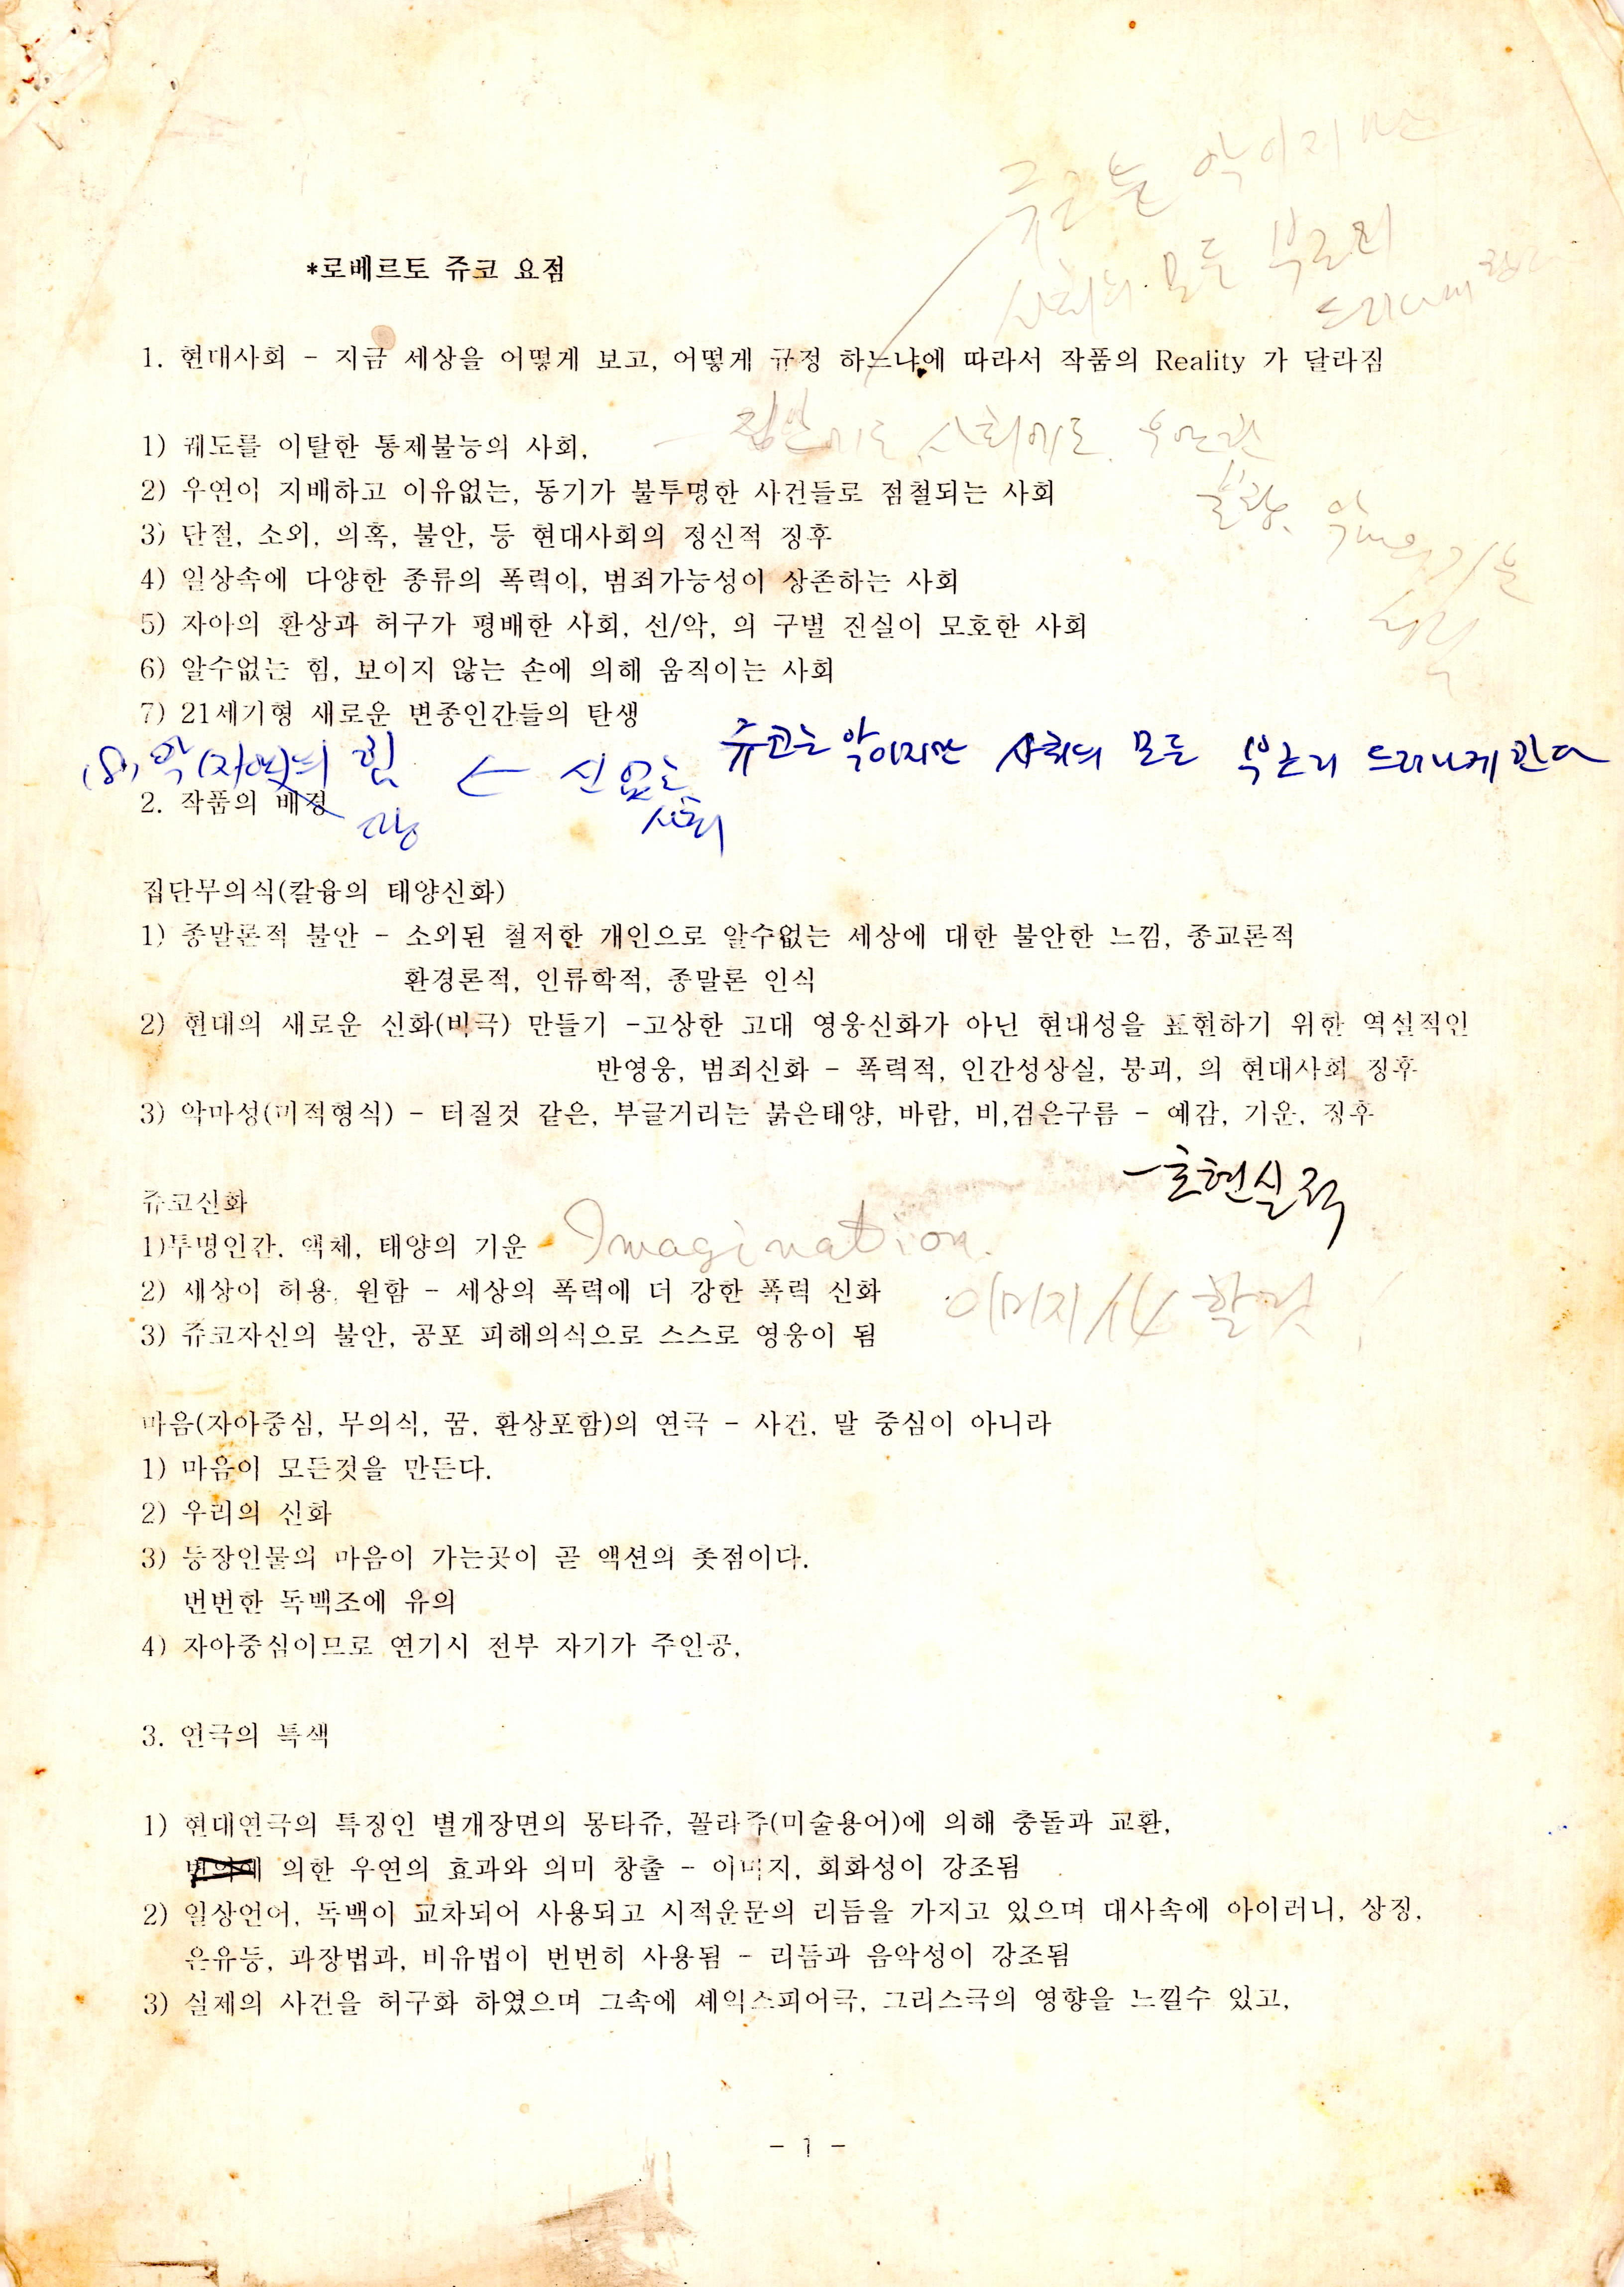 쥬코는 악이지만
사회의 모든 부조리
드러나게
*로베르토 쥬코 요점
1. 현대사회 - 지금 세상을 어떻게 보고, 어떻게 규정 하느냐에 따라서 작품의 Reality 가 달라짐
1) 궤도를 이탈한 통제불능의 사회,
사회에도
2) 우연이 지배하고 이유없는, 동기가 불투명한 사건들로 점철되는 사회
3) 단절, 소외, 의혹, 불안, 등 현대사회의 정신적 징후
4) 일상속에 다양한 종류의 폭력이, 범죄가능성이 상존하는 사회
5) 자아의 환상과 허구가 팽배한 사회, 선/악, 의 구별 진실이 모호한 사회
6) 알수없는 힘, 보이지 않는 손에 의해 움직이는 사회
7) 21세기형 새로운 변종인간들의 탄생
쥬코는 악이지만 사회의 모든 부조리 드러나게 한다
(8) 악 의 힘 ← 신 없는
사회
2. 작품의 배경
집단무의식(칼융의 태양신화)
1) 종말론적 불안 - 소외된 철저한 개인으로 알수없는 세상에 대한 불안한 느낌, 종교론적
환경론적, 인류학적, 종말론 인식
2) 현대의 새로운 신화(비극) 만들기 -고상한 고대 영웅신화가 아닌 현대성을 표현하기 위한 역설적인
반영웅, 범죄신화 - 폭력적, 인간성상실, 붕괴, 의 현대사회 징후
3) 악마성(미적형식) - 터질것 같은, 부글거리는 붉은태양, 바람, 비,검은구름 - 예감, 기운, 징후
- 초현실적
쥬코신화
1)투명인간, 액체, 태양의 기운 - Imagination.
2) 세상이 허용, 원함 - 세상의 폭력에 더 강한 폭력 신화
이미지化 할것!
3) 쥬코자신의 불안, 공포 피해의식으로 스스로 영웅이 됨
마음(자아중심, 무의식, 꿈, 환상포함)의 연극 - 사건, 말 중심이 아니라
1) 마음이 모든것을 만든다.
2) 우리의 신화
3) 등장인물의 마음이 가는곳이 곧 액션의 촛점이다.
번번한 독백조에 유의
4) 자아중심이므로 연기시 전부 자기가 주인공,
3. 연극의 특색
1) 현대연극의 특징인 별개장면의 몽타쥬, 꼴라쥬(미술용어)에 의해 충돌과 교환,
의한 우연의 효과와 의미 창출 - 이미지, 회화성이 강조됨
2) 일상언어, 독백이 교차되어 사용되고 시적운문의 리듬을 가지고 있으며 대사속에 아이러니, 상징,
은유등, 과장법과, 비유법이 번번히 사용됨 - 리듬과 음악성이 강조됨
3) 실제의 사건을 허구화 하였으며 그속에 셰익스피어극, 그리스극의 영향을 느낄수 있고,
- 1 -